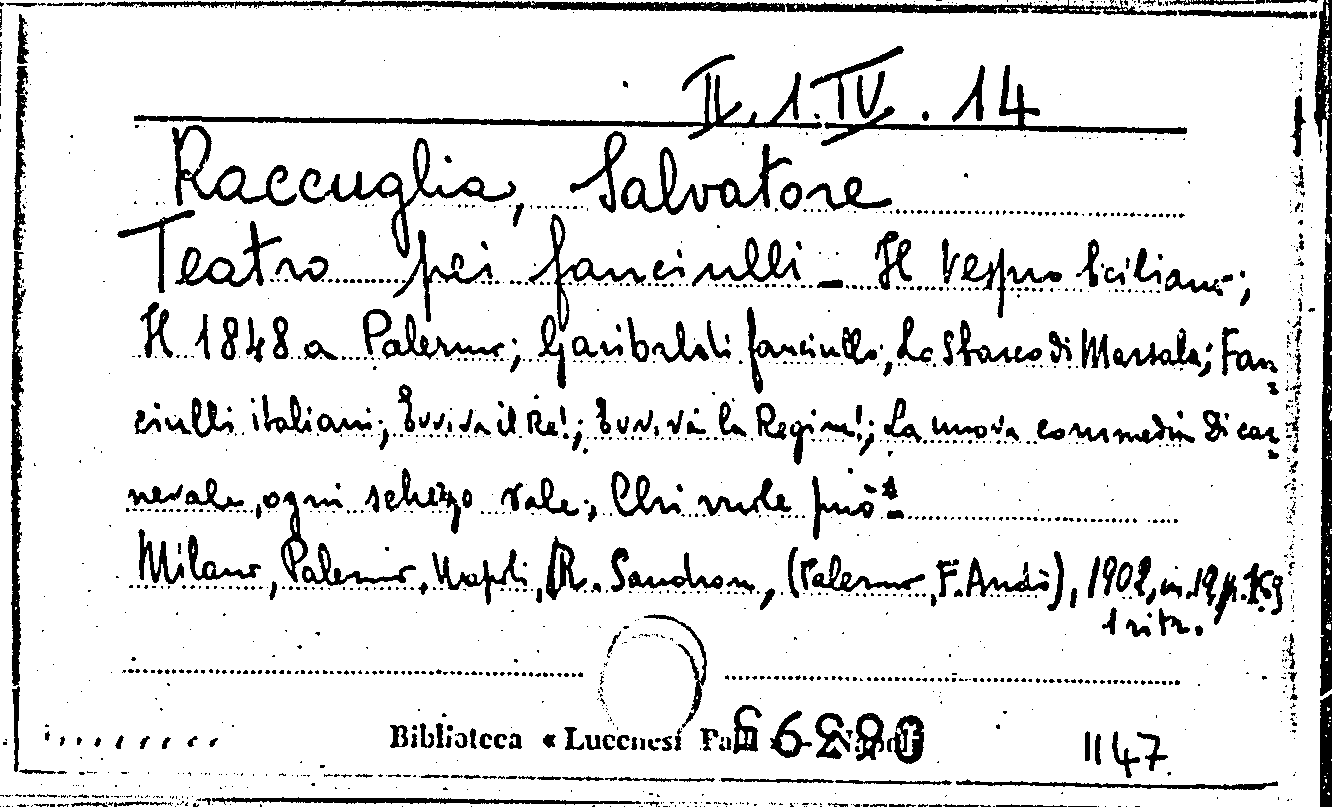 II. 1. IV. 14
Raccuglia, Salvatore
Teatro pei fanciulli - Il Vespro Siciliano;
Il 1848 a Palermo; Garibaldi fanciullo; Lo Sbarco di Marsala; Fan=
ciulli italiani; Evviva il Re!; Evviva la Regina!; La nuova commedia di car=
nevale, ogni scherzo vale; Chi vuole può -
Milano, Palermo, Napoli, R. Sandron, (Palermo, F. Andò), 1902, in.12, p.
1 ritr.
Biblioteca « Lucchesi Palli » - Napoli
1147